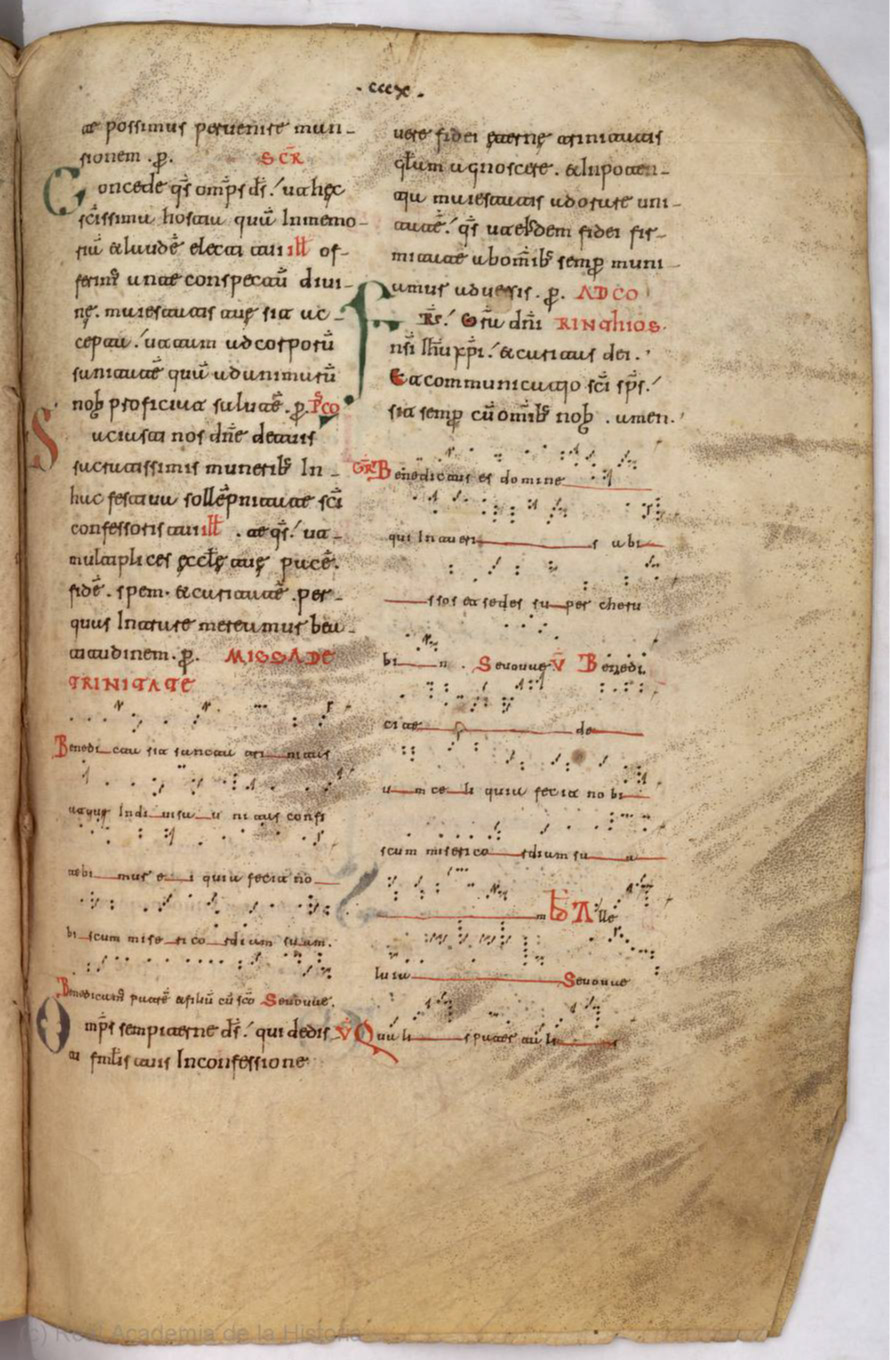 .cccx.
te possimus peruenire man-
sionem .p. SCR
Concede qs omps ds. ut hęc
scissima hostia quā In memo-
riā et laudē electi tui ill of-
ferimꝰ ante conspectū diui-
nę. maiestatis tuę sit ac-
cepta. ut tam ad corporū
sanitatē quā ad animarū
nob proficiat salutē .p. Pco
Saciasti nos dne de tuis
sacratissimis muneribꝰ In
hac festiua sollēpnitate sci
confessoris tui ill . te qs. ut
multiplices eccłę tuę pacē.
fidē. spem. et caritatē. per-
quas In ature mereamus bea-
titudinem .p. MISSA DE
TRINITATE
Benedicta sit sancta trinitas
atque Indiuisa unitas confi
tebimus ei quia fecit no
biscum misericordiam suam.
Benedicamꝰ patrē et filiū cū sco Seuouae.
Omps sempiterne ds. qui dedis
ti famlis tuis In confessione
uere fidei eterne trinitatis
głam agnoscere. et In poten-
tia maiestatis adorare uni-
tatē. qs ut eiusdem fidei fir-
mitate ab omibꝰ semp muni
amur aduersis .p. AD CO
RINTHIOS.
Frs. Gra dni
nsi Ihu xpi. et caritas dei.
Et communicatio sci sps.
sit semp cū omibꝰ nob . amen.
GR Benedictus es domine
qui Intueris abi
ssos et sedes super cheru
bin . Seuouae V Benedi
cite de
um celi quia fecit nobi
scum misericordiam sua
m Alle
luia Seuouae
V Qualis pater tali s
© Real Academia de la Historia